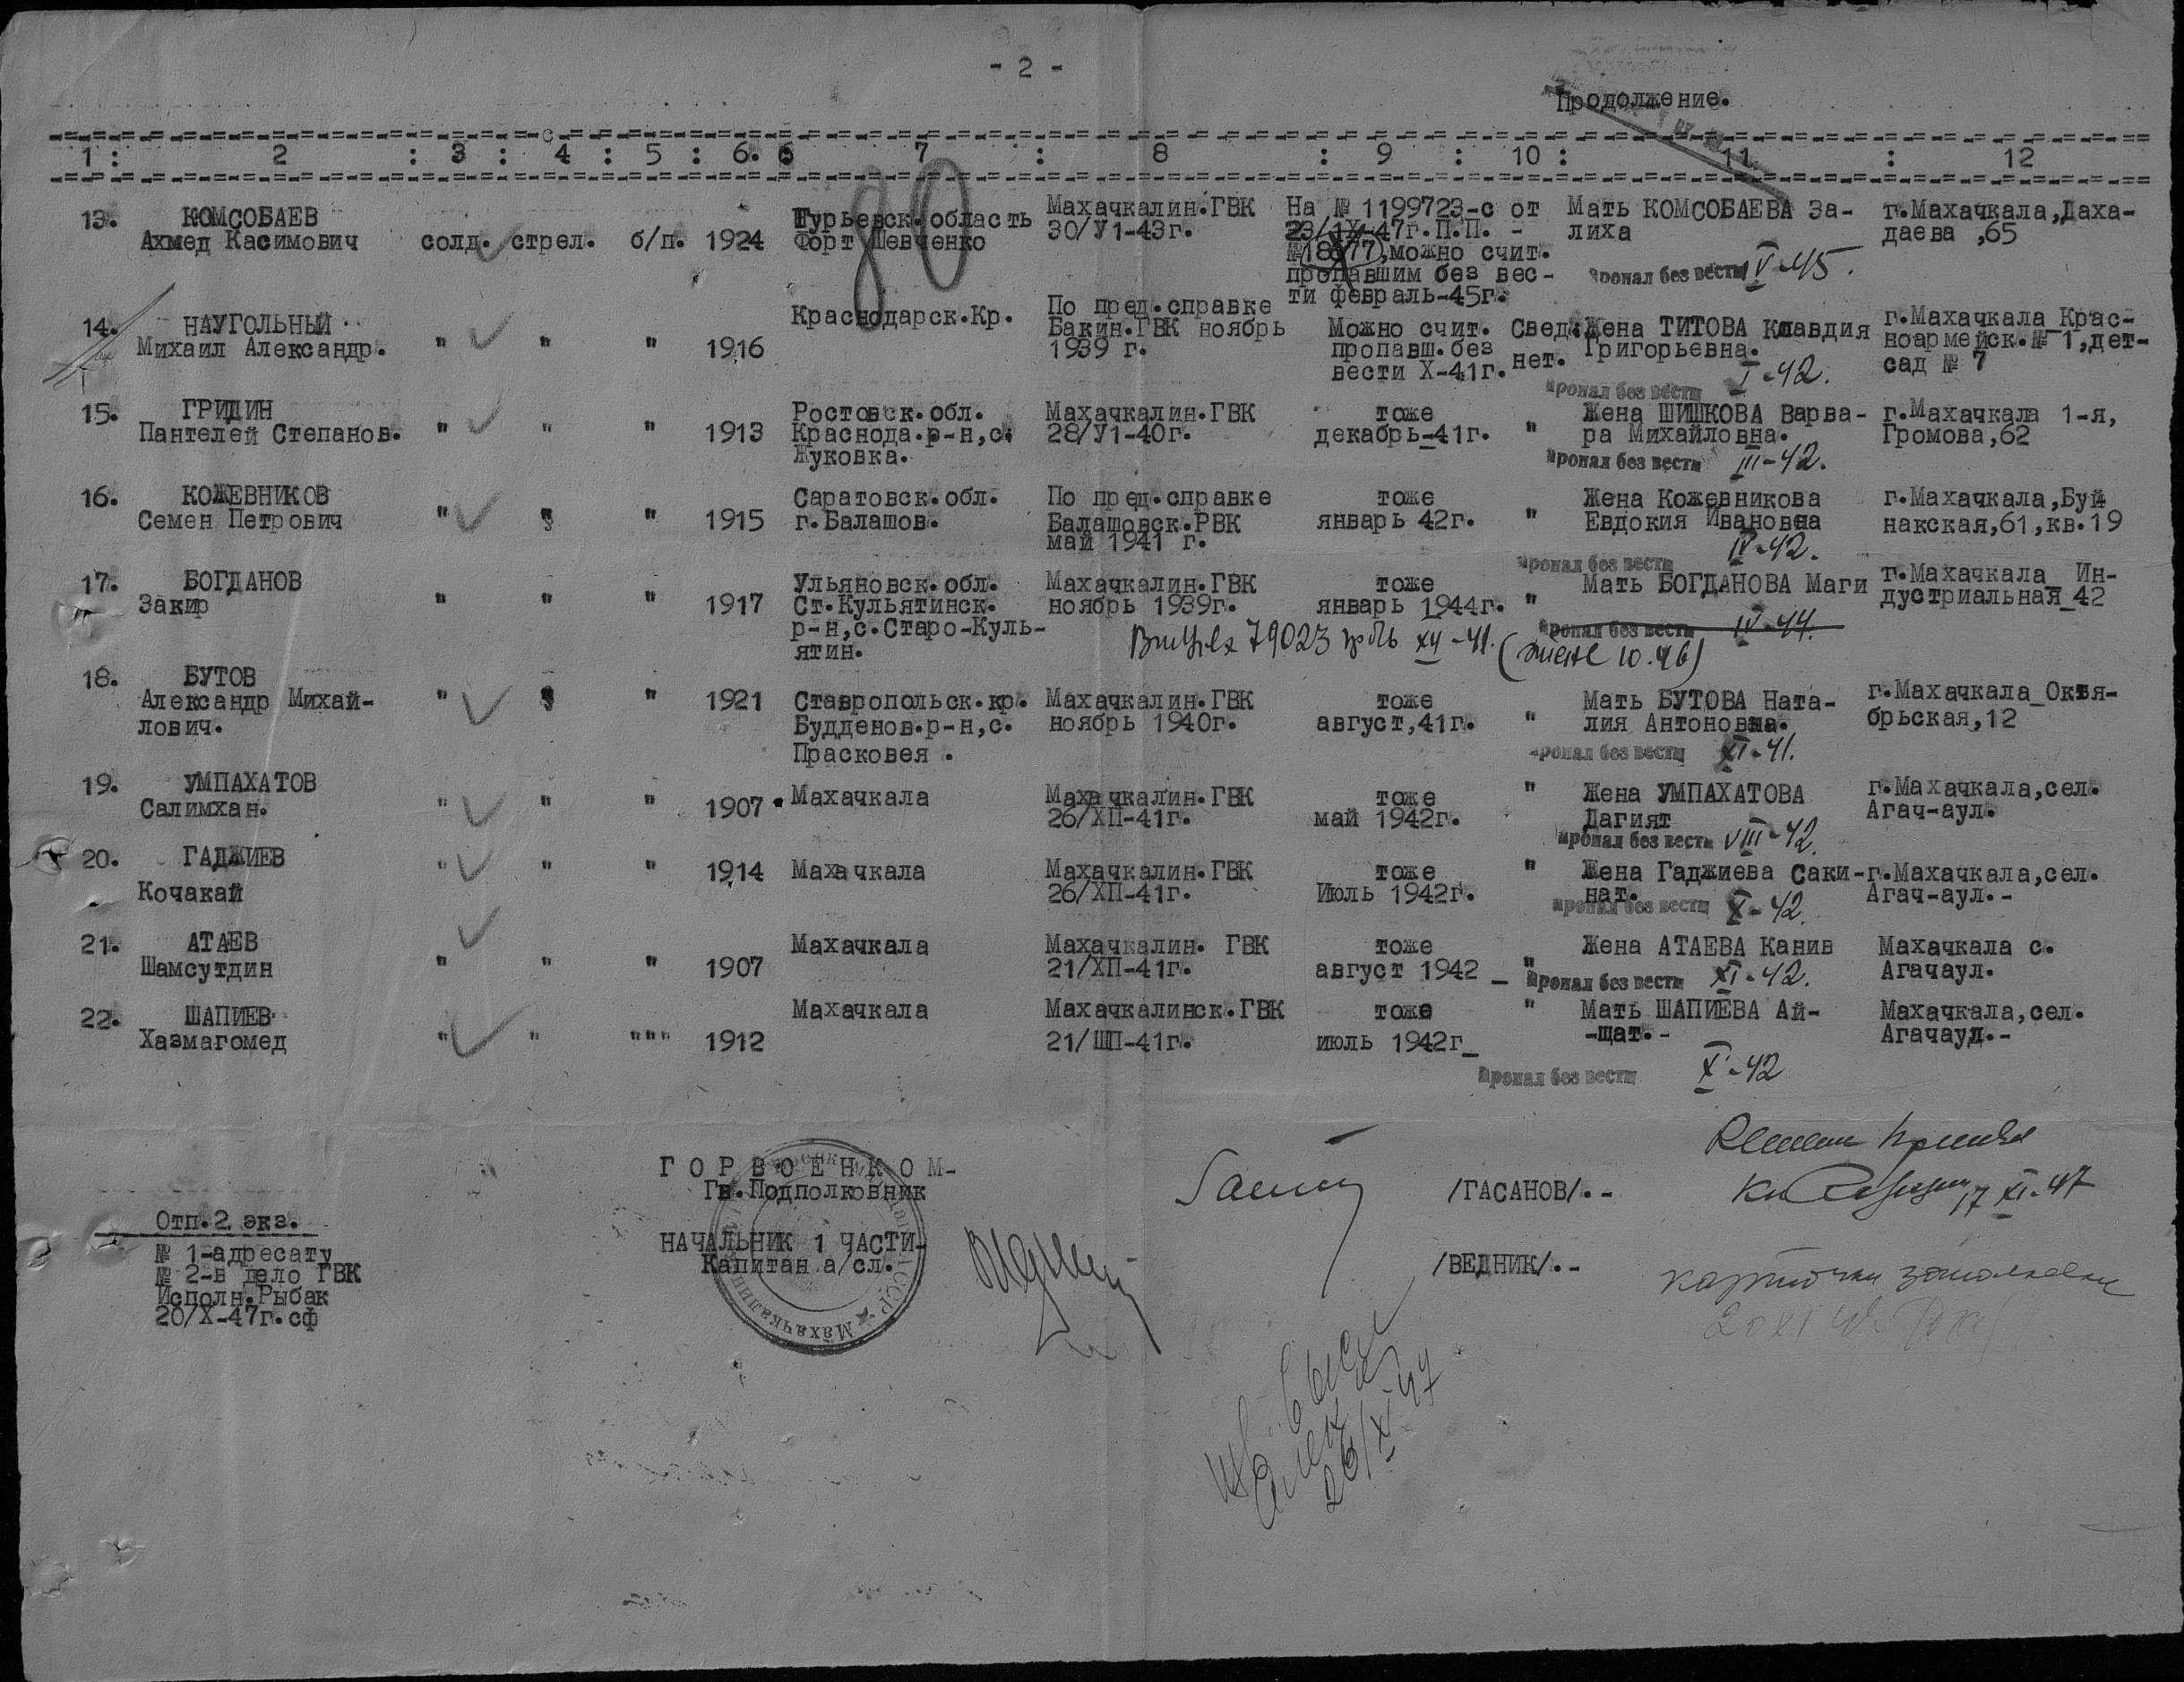 - 2 -
Продолжение.
1 : 2 : 3 : 4 : 5 : 6. 7 : 8 : 9 : 10 : 11. : 12
80
13. КОМСОБАЕВ
Ахмед Касимович солд. стрел. б/п. 1924
Гурьевск.область
Форт Шевченко
Махачкалин.ГВК
30/У1-43г.
На № 1199723-с от
23/1Х-47г.П.П. -
№18677,можно счит.
пропавшим без вес-
ти февраль-45г.
Мать КОМСОБАЕВА За-
лиха
пропал без вести V-45.
г.Махачкала,Даха-
даева ,65
14. НАУГОЛЬНЫЙ
Михаил Александр. " " " 1916
Краснодарск.Кр.
По пред.справке
Бакин.ГВК ноябрь
1939 г.
Можно счит.
пропавш.без
вести Х-41г.
Свед.
нет.
Жена ТИТОВА Клавдия
Григорьевна.
пропал без вести I-42.
г.Махачкала_Крас-
ноармейск.№ 1,дет-
сад № 7
15. ГРИДИН
Пантелей Степанов. " " " 1913
Ростовск.обл.
Краснода.р-н,с.
Жуковка.
Махачкалин.ГВК
28/У1-40г.
тоже
декабрь-41г. "
Жена ШИШКОВА Варва-
ра Михайловна.
пропал без вести III-42.
г.Махачкала 1-я,
Громова,62
16. КОЖЕВНИКОВ
Семен Петрович " " " 1915
Саратовск.обл.
г.Балашов.
По пред.справке
Балашовск.РВК
май 1941 г.
тоже
январь 42г. "
Жена Кожевникова
Евдокия Ивановна
IV-42.
пропал без вести
г.Махачкала,Буй
накская,61,кв.19
17. БОГДАНОВ
Закир " " " 1917
Ульяновск.обл.
Ст.Кульятинск.
р-н,с.Старо-Куль-
ятин.
Махачкалин.ГВК
ноябрь 1939г.
тоже
январь 1944г. "
Мать БОГДАНОВА Маги
пропал без вести IV-44.
г.Махачкала_ Ин-
дустриальная_42
79023 XII-41.
18. БУТОВ
Александр Михай-
лович. " " " 1921
Ставропольск.кр.
Будденов.р-н,с.
Прасковея .
Махачкалин.ГВК
ноябрь 1940г.
тоже
август,41г. "
Мать БУТОВА Ната-
лия Антоновна.
пропал без вести XI-41.
г.Махачкала_Октя-
брьская,12
19. УМПАХАТОВ
Салимхан. " " " 1907
Махачкала
Махачкалин.ГВК
26/ХП-41г.
тоже
май 1942г. "
Жена УМПАХАТОВА
Дагият
пропал без вести VIII-42.
г.Махачкала,сел.
Агач-аул.
20. ГАДЖИЕВ
Кочакай " " " 1914
Махачкала
Махачкалин.ГВК
26/ХП-41г.
тоже
Июль 1942г. "
Жена Гаджиева Саки-
нат.
пропал без вести X-42.
г.Махачкала,сел.
Агач-аул.-
21. АТАЕВ
Шамсутдин " " " 1907
Махачкала
Махачкалин. ГВК
21/ХП-41г.
тоже
август 1942 _ "
Жена АТАЕВА Канив
пропал без вести XI-42.
Махачкала с.
Агачаул.
22. ШАПИЕВ
Хазмагомед " " """ 1912
Махачкала
Махачкалинск.ГВК
21/ШП-41г.
тоже
июль 1942г_ "
Мать ШАПИЕВА Ай-
-щат.-
пропал без вести X-42
Махачкала,сел.
Агачаул.-
Г О Р В О Е Н К О М-
Гв.Подполковник /ГАСАНОВ/.-
НАЧАЛЬНИК 1 ЧАСТИ-
Капитан а/сл. /ВЕДНИК/.-
Отп.2 экз.
№ 1-адресату
№ 2-в дело ГВК
Исполн.Рыбак
20/Х-47г.сф
17 XI-47
карточки заполнены
26/X-47